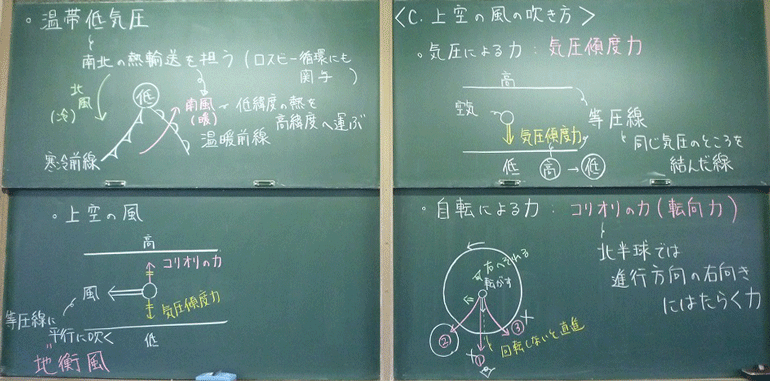 。温帯低気圧
南北の熱輸送を担う(ロスビー循環にも
関与)
北風
(冷)
低
南風
(暖)
低緯度の熱を
高緯度へ運ぶ
温暖前線
寒冷前線
。上空の風
高
コリオリの力
風
気圧傾度力
等圧線に
平行に吹く
低
地衡風
<C. 上空の風の吹き方>
。気圧による力：気圧傾度力
高
空気
等圧線
気圧傾度力
同じ気圧のところを
結んだ線
低
高→低
。自転による力：コリオリの力(転向力)
北半球では
進行方向の右向き
にはたらく力
右へそれる
転がす
②
③
①
回転しないと直進